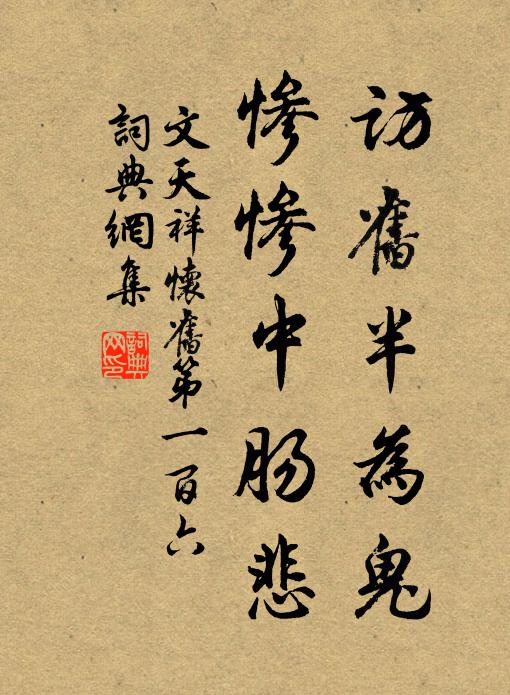 訪舊半為鬼
慘慘中肠悲
文天祥懷舊第一百六
詞典網集
詞典網印